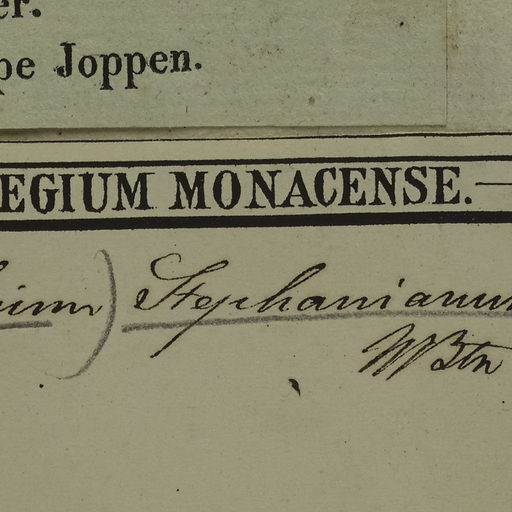 er.
pe Joppen.
EGIUM MONACENSE.
Stephanianum
WBtn